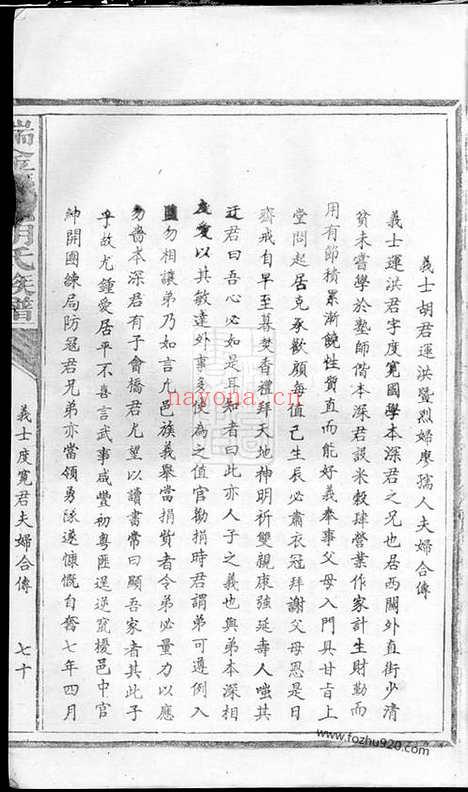 義士胡君運洪暨烈婦廖孺人夫婦合傳
義士運洪君字度寬國學本深君之兄也居西關外直街少清
貧未嘗學於塾師偕本深君設米穀肆營業作家計生財勤而
用有節積累漸饒性質直而能好義奉事父母入門具甘旨上
堂問起居克承歡顏每值己生辰必肅衣冠拜謝父母恩是日
齋戒自早至暮焚香禮拜天地神明祈雙親康強延壽人嗤其
迂君曰吾心必如是耳知者曰此亦人子之義也與弟本深相
友愛以其敏達外事多使為之值官勸捐時君謂弟可遵例入
勿相讓弟乃如言凡邑族義舉當捐貲者令弟必量力以應
勿嗇本深君有子會橋君尤望以讀書常曰顯吾家者其此子
乎故尤鍾愛居平不喜言武事咸豐初粵匪逞逆竄擾邑中官
紳開團練局防寇君兄弟亦當領勇隊遂慷慨自奮七年四月
瑞金 胡氏族譜
義士度寬君夫婦合傳
七十
nayona.cn
www.fozhu920.com